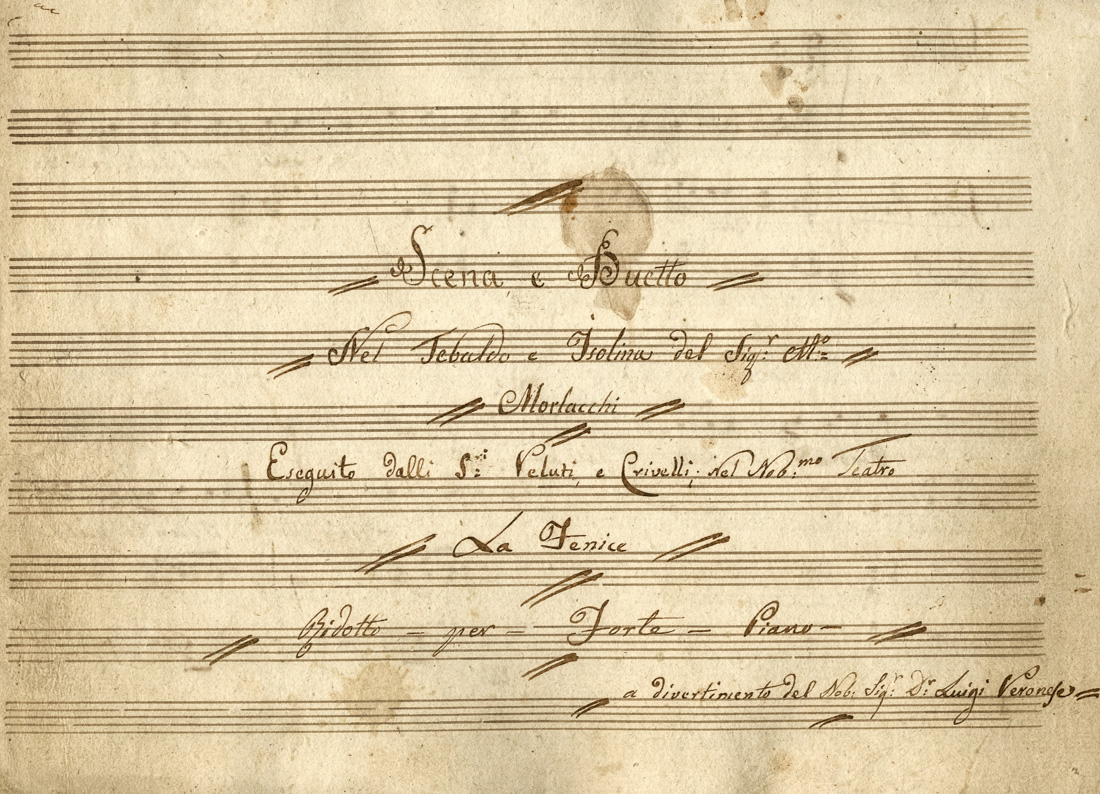 Scena, e Duetto
Nel Tebaldo e Isolina del Sigr: Mo:
Morlacchi
Eseguito dalli S:ri Veluti, e Crivelli; nel Nob:mo Teatro
La Fenice
Ridotto - per - Forte - Piano -
a divertimento del Nob: Sigr: Dr: Luigi Veronese